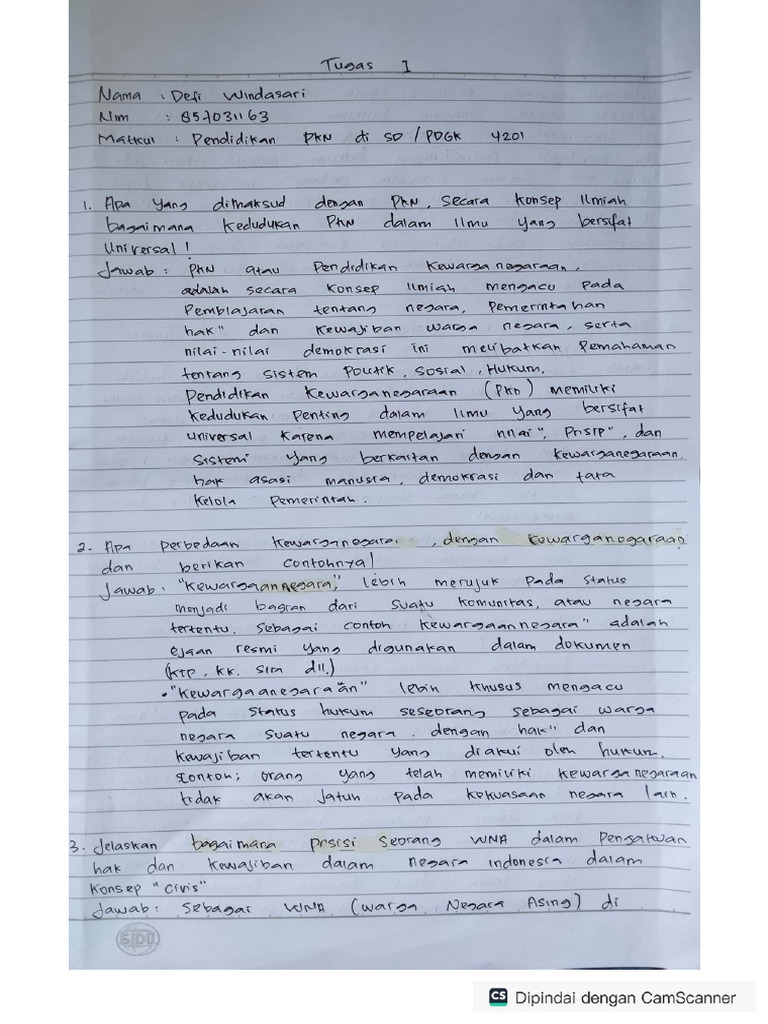 Tugas 1
Nama : Defi Windasari
Nim : 857031163
Matkul : Pendidikan PKN di SD / PDGK 4201
1. Apa yang dimaksud dengan PKN, secara konsep Ilmiah
bagaimana kedudukan PKN dalam Ilmu yang bersifat
Universal!
Jawab : PKN atau Pendidikan Kewarganegaraan,
adalah secara konsep Ilmiah mengacu pada
Pemblajaran tentang negara, Pemerintahan
hak" dan kewajiban warga negara, serta
nilai-nilai demokrasi ini melibatkan Pemahaman
tentang sistem Politik, Sosial, Hukum.
Pendidikan Kewarganegaraan (PKn) memiliki
kedudukan penting dalam Ilmu yang bersifat
universal karena mempelajari nilai", Prisip", dan
Sistem yang berkaitan dengan kewarganegaraan,
hak asasi manusia, demokrasi dan tata
kelola Pemerintah.
2. Apa perbedaan kewarganegara, dengan kewarganegaraan
dan berikan contohnya!
Jawab : "Kewargaannegara," lebih merujuk pada status
menjadi bagian dari suatu komunitas, atau negara
tertentu. Sebagai contoh kewargaannegara" adalah
ejaan resmi yang digunakan dalam dokumen
(KTP, KK. SIM dll.)
• "Kewargaanegaraan" lebih khusus mengacu
pada status hukum seseorang sebagai warga
negara suatu negara. dengan hak" dan
kewajiban tertentu yang diakui oleh hukum.
Contoh; orang yang telah memiliki kewarganegaraan
tidak akan jatuh pada kekuasaan negara lain.
3. Jelaskan bagaimana posisi seorang WNA dalam Pengaturan
hak dan kewajiban dalam negara Indonesia dalam
konsep "civis"
Jawab: Sebagai WNA (Warga Negara Asing) di
SIDU
CS Dipindai dengan CamScanner